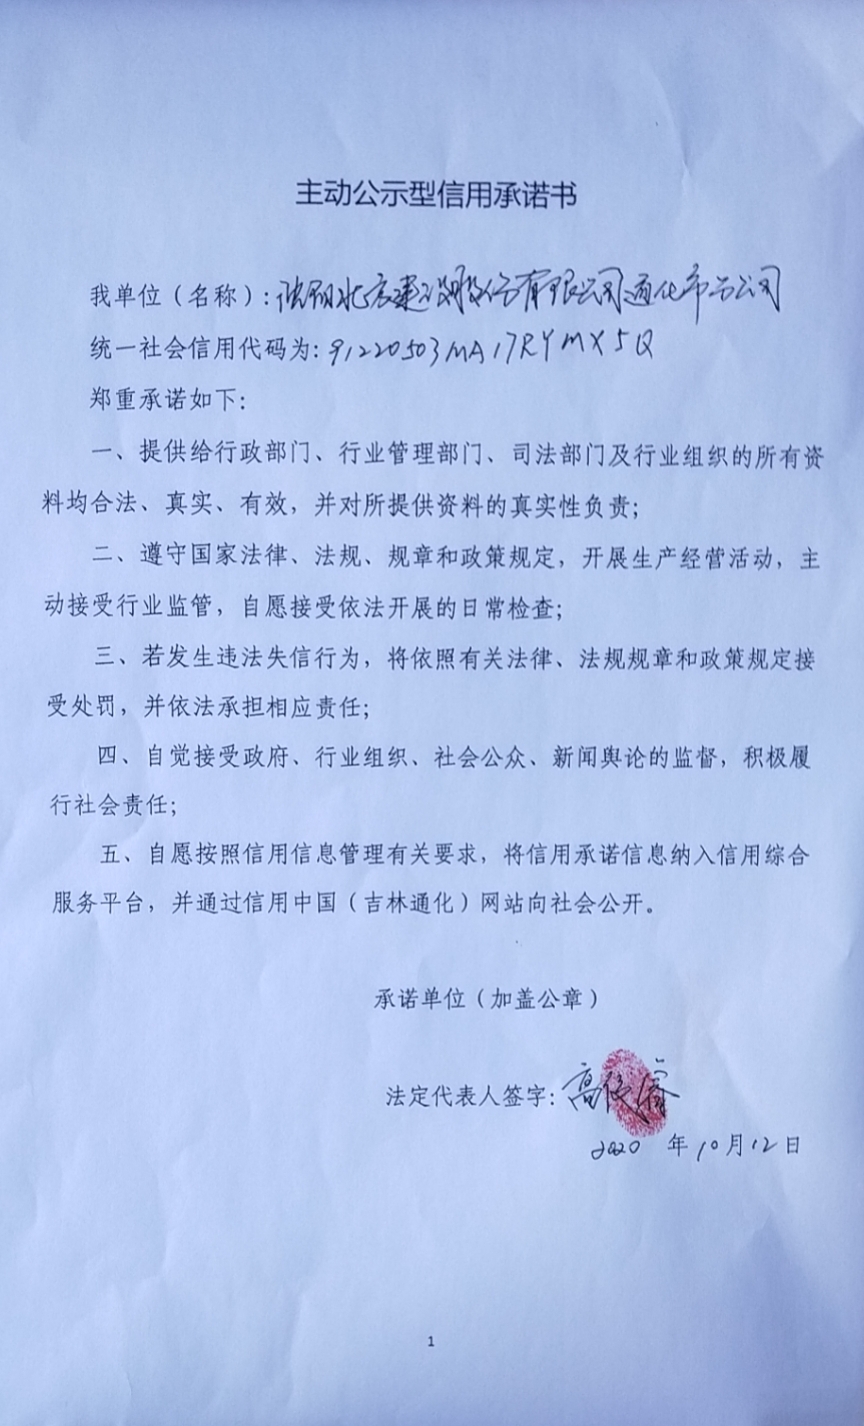 主动公示型信用承诺书
我单位（名称）：北京建设股份有限公司通化市分公司
统一社会信用代码为：91220503MA17RYMX5Q
郑重承诺如下：
一、提供给行政部门、行业管理部门、司法部门及行业组织的所有资
料均合法、真实、有效，并对所提供资料的真实性负责；
二、遵守国家法律、法规、规章和政策规定，开展生产经营活动，主
动接受行业监管，自愿接受依法开展的日常检查；
三、若发生违法失信行为，将依照有关法律、法规规章和政策规定接
受处罚，并依法承担相应责任；
四、自觉接受政府、行业组织、社会公众、新闻舆论的监督，积极履
行社会责任；
五、自愿按照信用信息管理有关要求，将信用承诺信息纳入信用综合
服务平台，并通过信用中国（吉林通化）网站向社会公开。
承诺单位（加盖公章）
法定代表人签字：高俊睿
2020 年10月12日
1